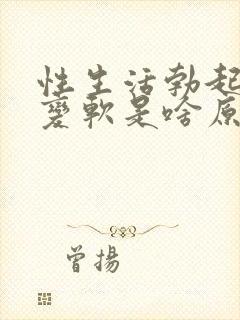 性生活勃起
变軟是啥原
曾揚